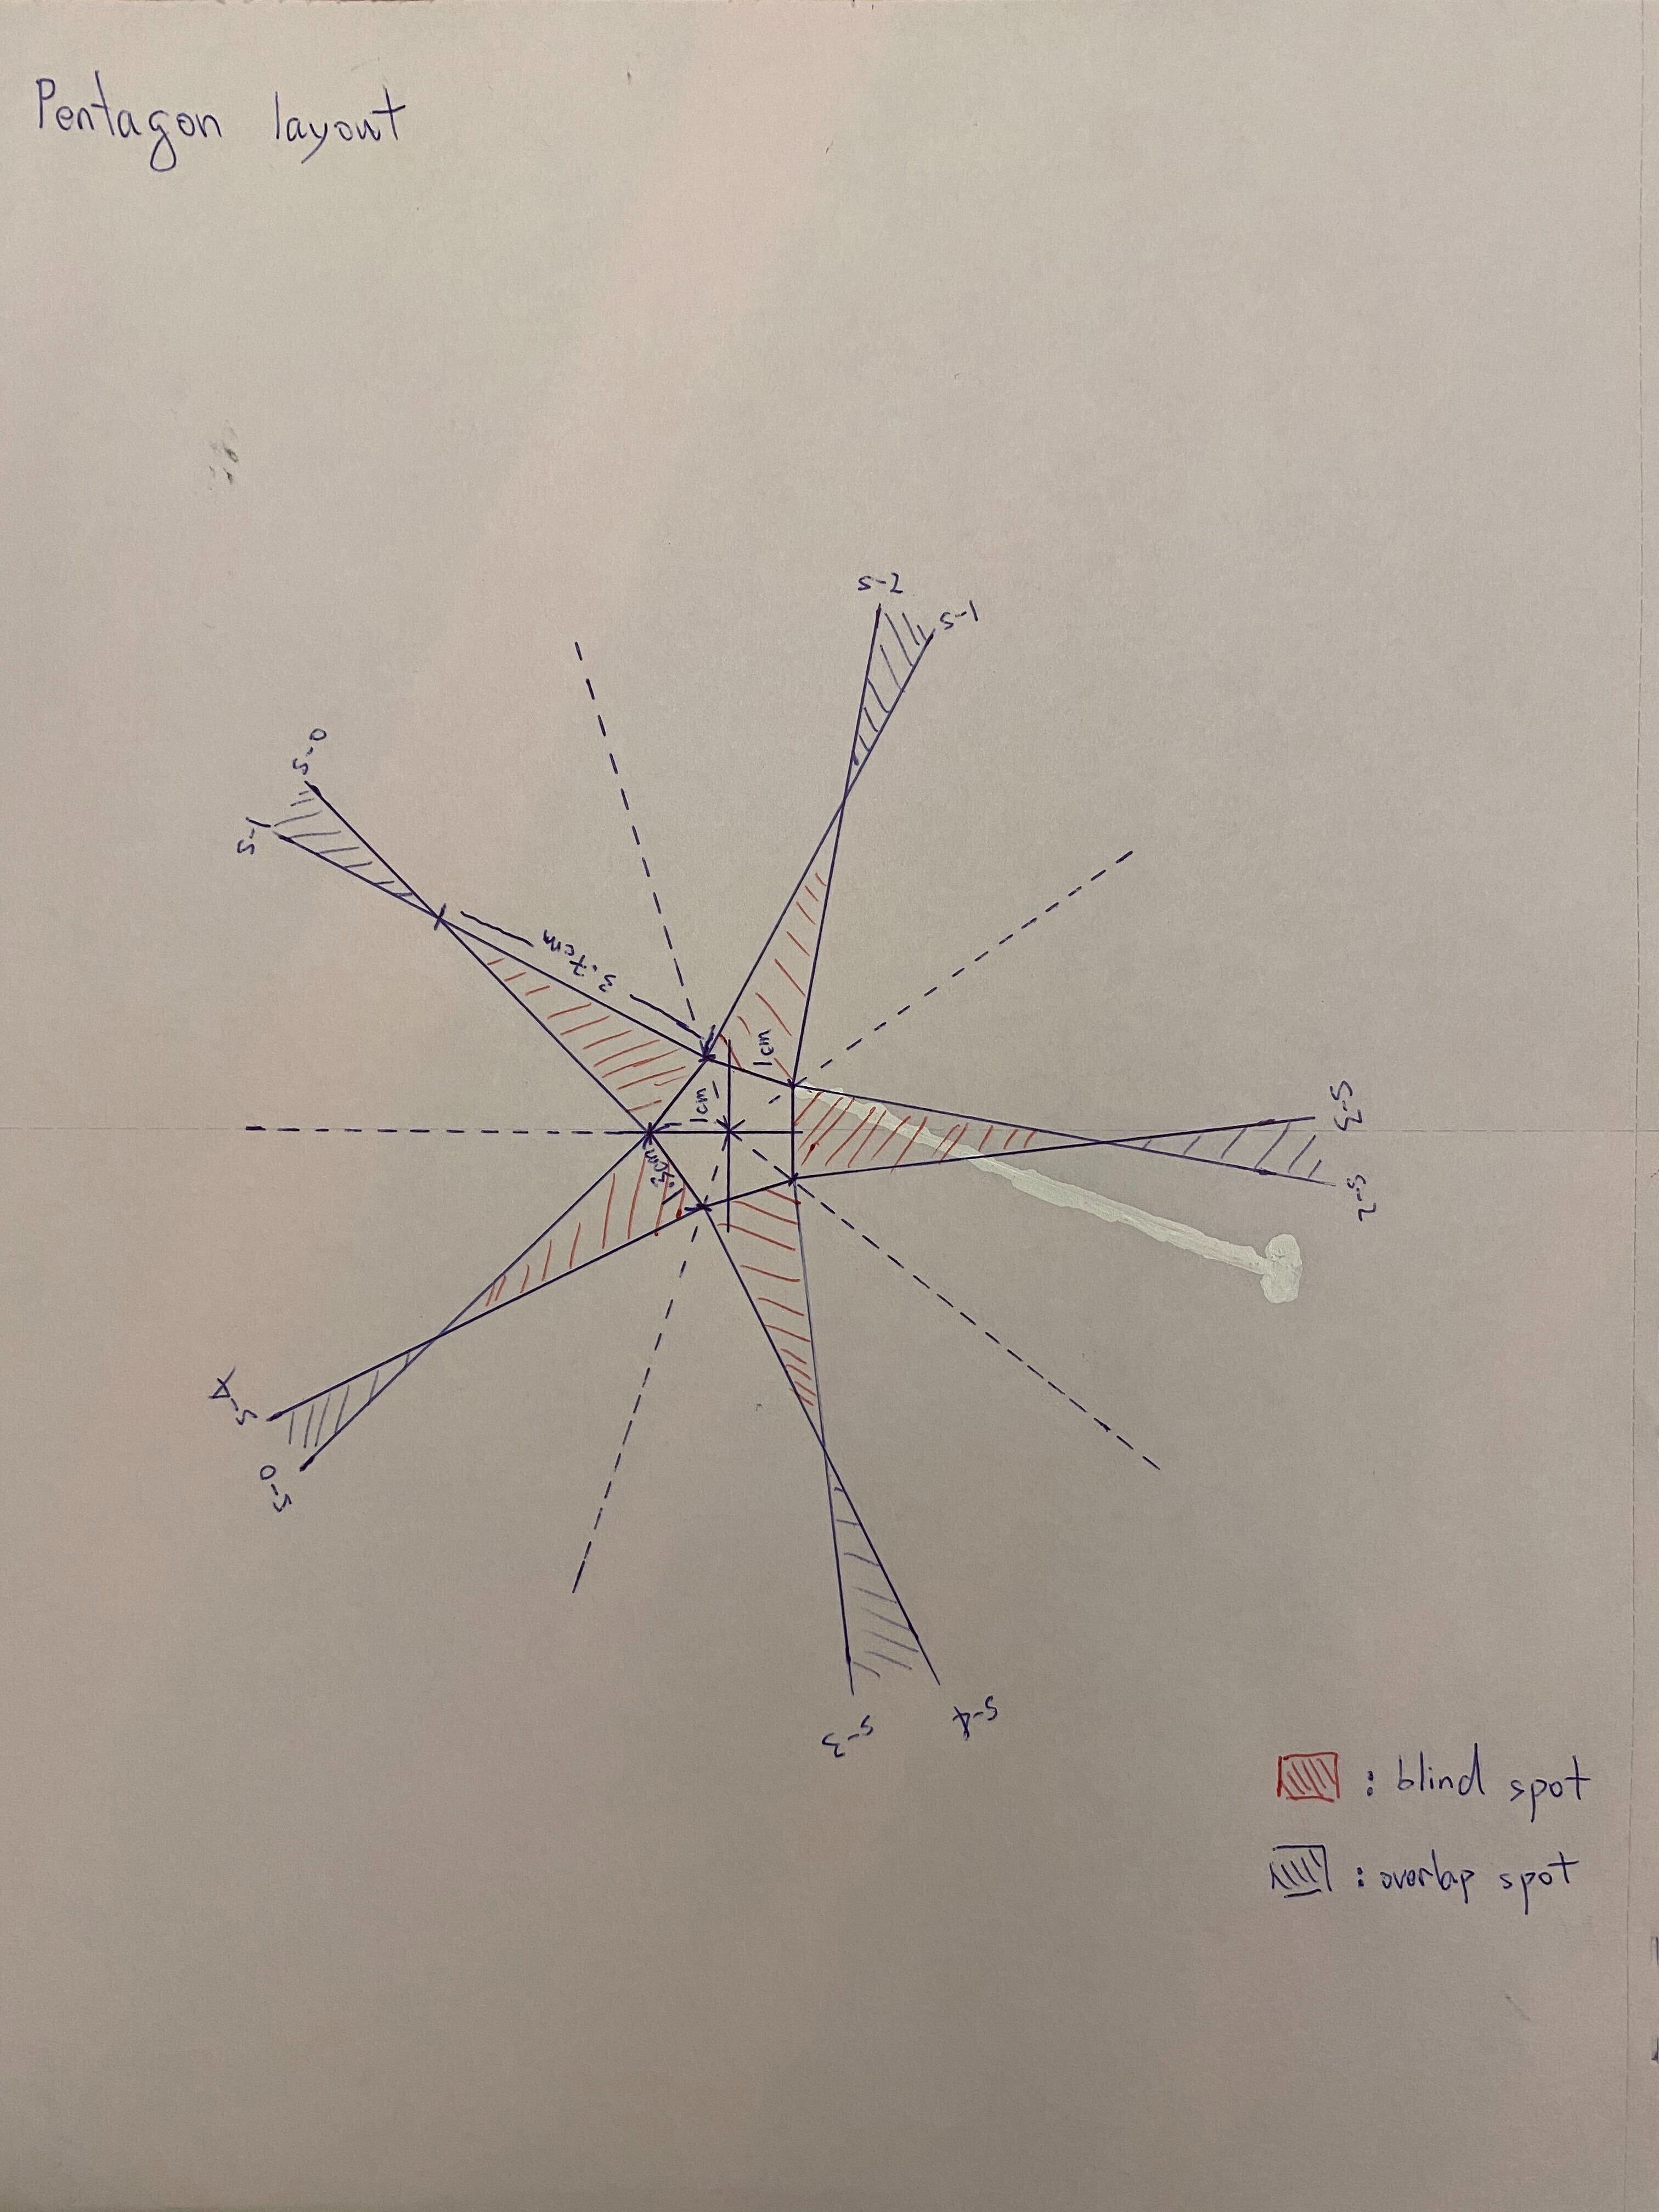 Pentagon layout
S-2
S-1
S-0
S-1
3.7cm
1cm
1cm
1.5cm
S-3
S-2
S-4
S-0
S-3
S-4
: blind spot
: overlap spot